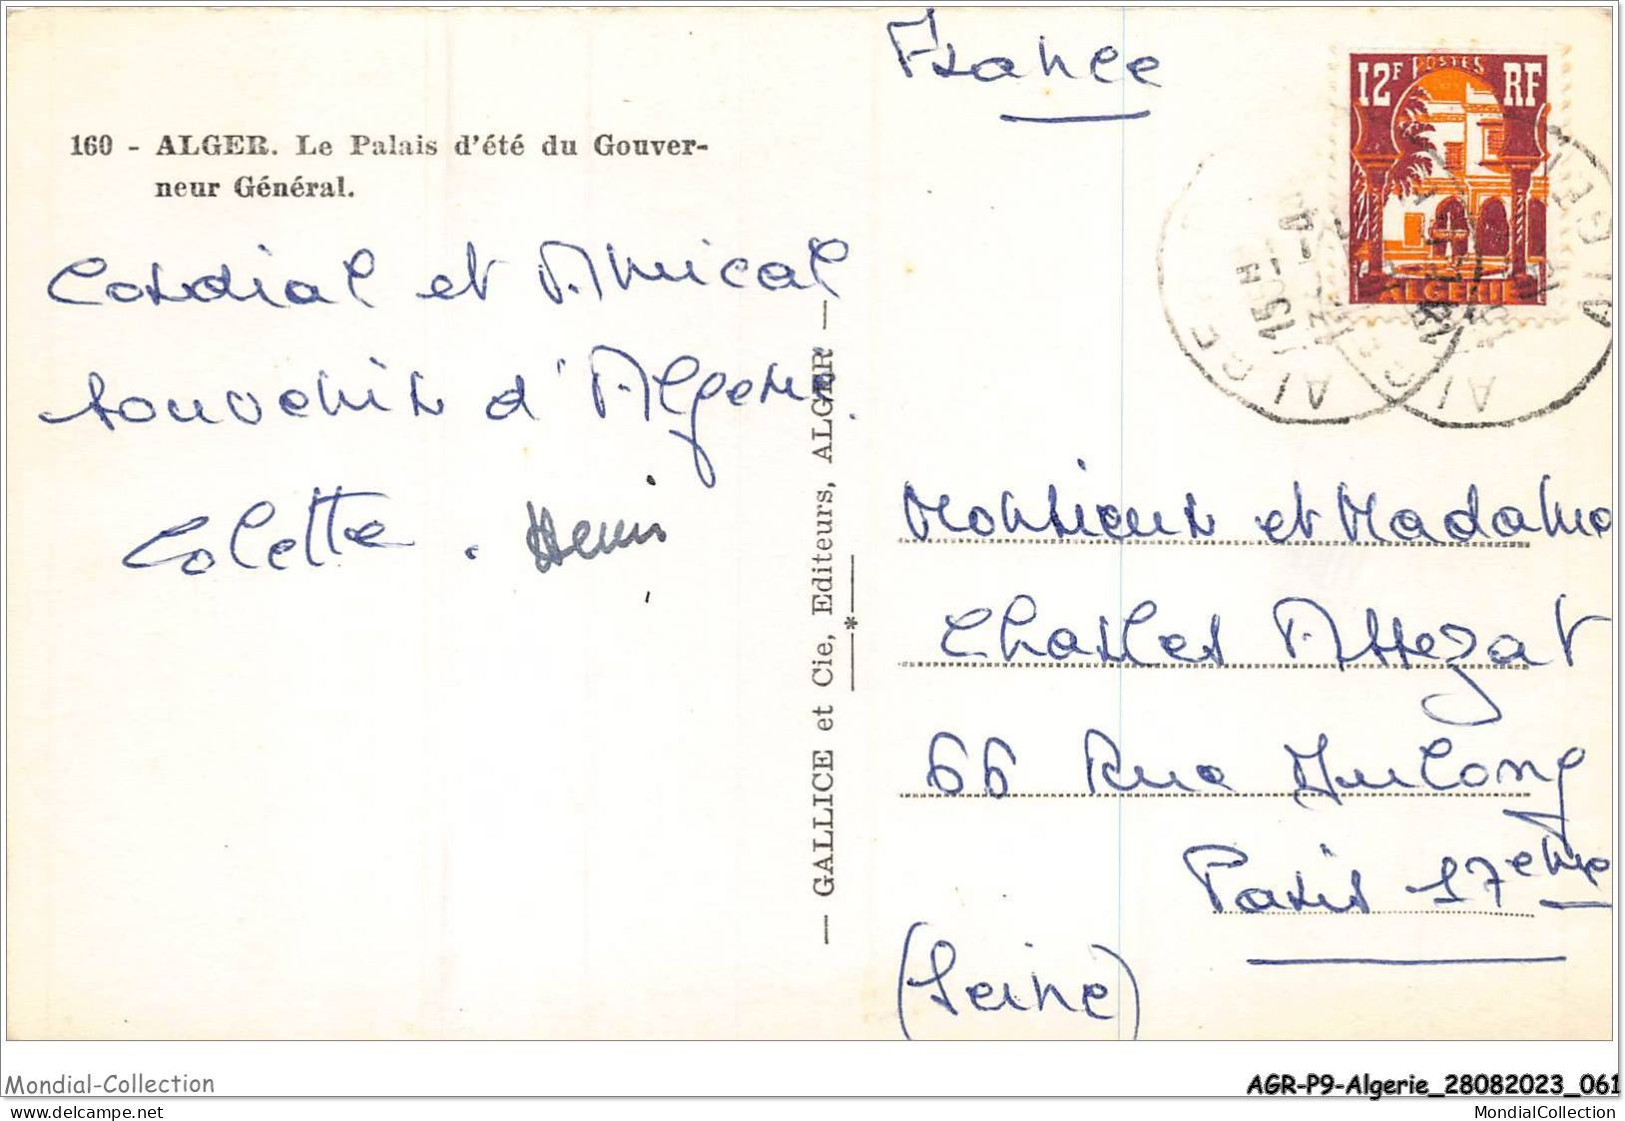 160 - ALGER. Le Palais d'été du Gouver-
neur Général.
Cordial et Amical
souvenir d'Alger.
Colette. Henri
— GALLICE et Cie, Editeurs, ALGER —
*
France
12F POSTES RF
ALGERIE
15H
ALGER
ALGER
Monsieur et Madame
Charles Assezat
66 Rue Dulong
Paris 17eme
(Seine)
Mondial-Collection
AGR-P9-Algerie_28082023_061
www.delcampe.net
MondialCollection